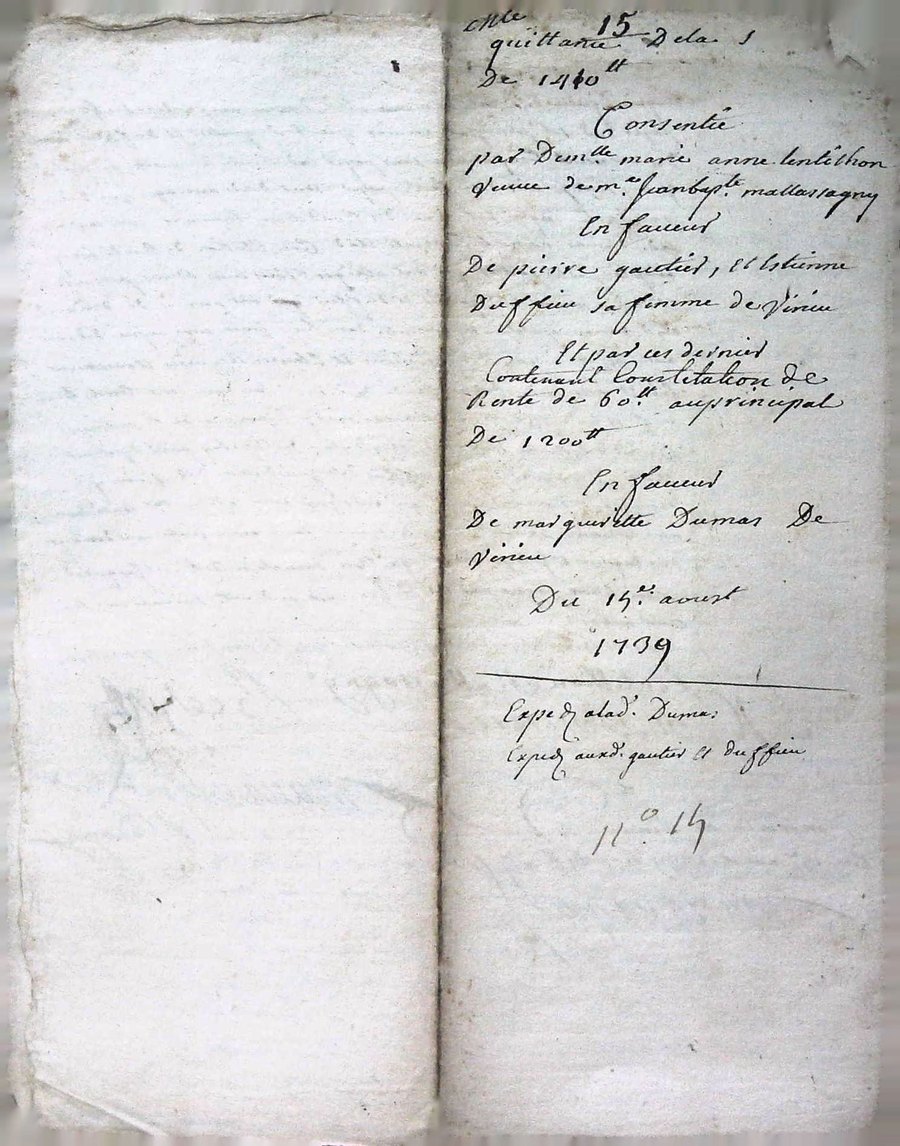 15
quittance De la s
De 1410ᵗᵗ
Consentie
par Demˡˡᵉ marie anne tentithon
veuue de mᵉ. Jean bapᵗᵉ. mallassagny
En faueur
De pierre gautier, Et Estienne
Duffieu sa femme de Virieu
Et par ces dernier
Contenant Constitution de
Rente de 60ᵗᵗ. au principal
De 1200ᵗᵗ
En faueur
De margueritte Dumas De
Virieu
Du 15ᵉ. aoust
1739
Exped. a lad. Dumas
Exped. auxd. gautier et duffieu
n°. 15